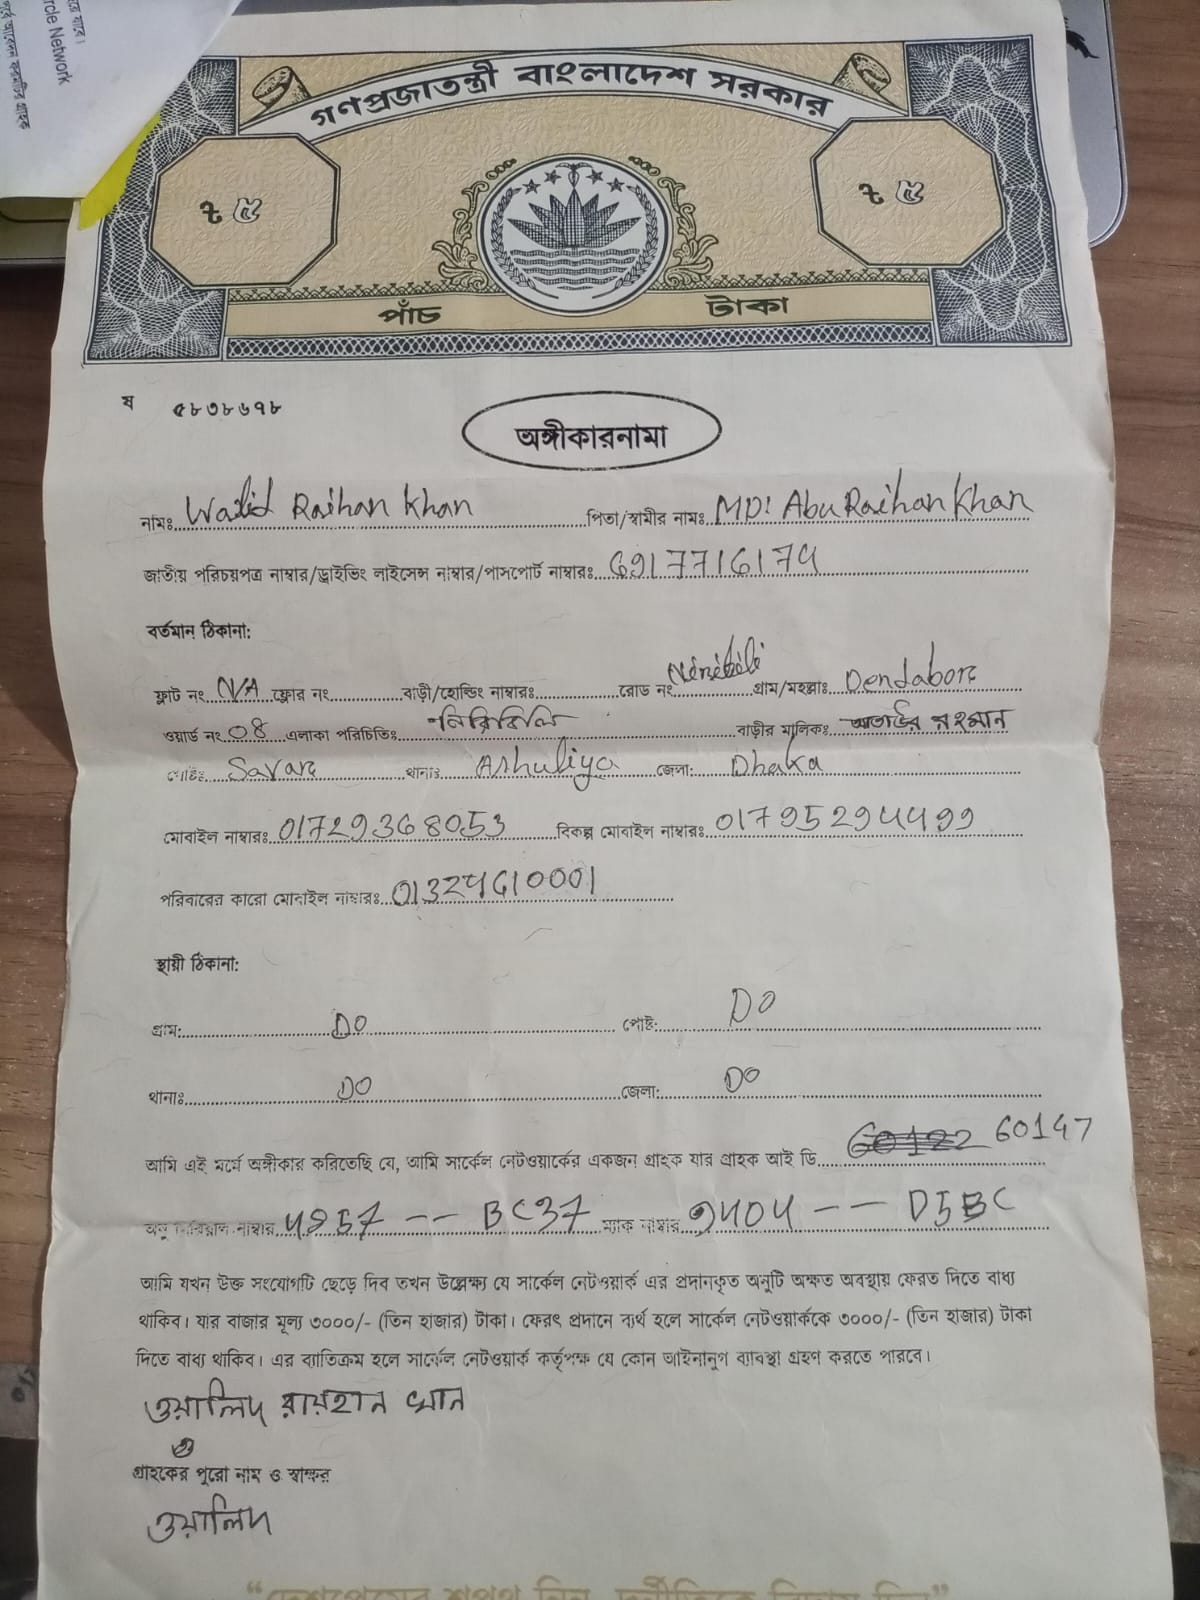 rcle Network
গণপ্রজাতন্ত্রী বাংলাদেশ সরকার
৳ ৫ ৳ ৫
পাঁচ টাকা
ষ ৫৮৩৮৬৭৮
অঙ্গীকারনামা
নামঃ Walid Raihan Khan পিতা/স্বামীর নামঃ MD: Abu Raihan Khan
জাতীয় পরিচয়পত্র নাম্বার/ড্রাইভিং লাইসেন্স নাম্বার/পাসপোর্ট নাম্বারঃ
বর্তমান ঠিকানা:
ফ্লাট নং N/A ফ্লোর নং বাড়ী/হোল্ডিং নাম্বারঃ রোড নং Niribili গ্রাম/মহল্লাঃ Dendabor
ওয়ার্ড নং 08 এলাকা পরিচিতিঃ নিরিবিলি বাড়ীর মালিকঃ রহমান
পোষ্টঃ Savar থানাঃ Ashuliya জেলা: Dhaka
মোবাইল নাম্বারঃ 01729368053 বিকল্প মোবাইল নাম্বারঃ
পরিবারের কারো মোবাইল নাম্বারঃ
স্থায়ী ঠিকানা:
গ্রাম: DO পোষ্ট: DO
থানাঃ DO জেলা: DO
আমি এই মর্মে অঙ্গীকার করিতেছি যে, আমি সার্কেল নেটওয়ার্কের একজন গ্রাহক যার গ্রাহক আই ডি 60147
অনু সিরিয়াল নাম্বার -- BC37 ম্যাক নাম্বার -- D5BC
আমি যখন উক্ত সংযোগটি ছেড়ে দিব তখন উল্লেক্ষ্য যে সার্কেল নেটওয়ার্ক এর প্রদানকৃত অনুটি অক্ষত অবস্থায় ফেরত দিতে বাধ্য
থাকিব। যার বাজার মূল্য ৩০০০/- (তিন হাজার) টাকা। ফেরৎ প্রদানে ব্যর্থ হলে সার্কেল নেটওয়ার্ককে ৩০০০/- (তিন হাজার) টাকা
দিতে বাধ্য থাকিব। এর ব্যাতিক্রম হলে সার্কেল নেটওয়ার্ক কর্তৃপক্ষ যে কোন আইনানুগ ব্যাবস্থা গ্রহণ করতে পারবে।
ওয়ালিদ রায়হান খান
গ্রাহকের পুরো নাম ও স্বাক্ষর
ওয়ালিদ